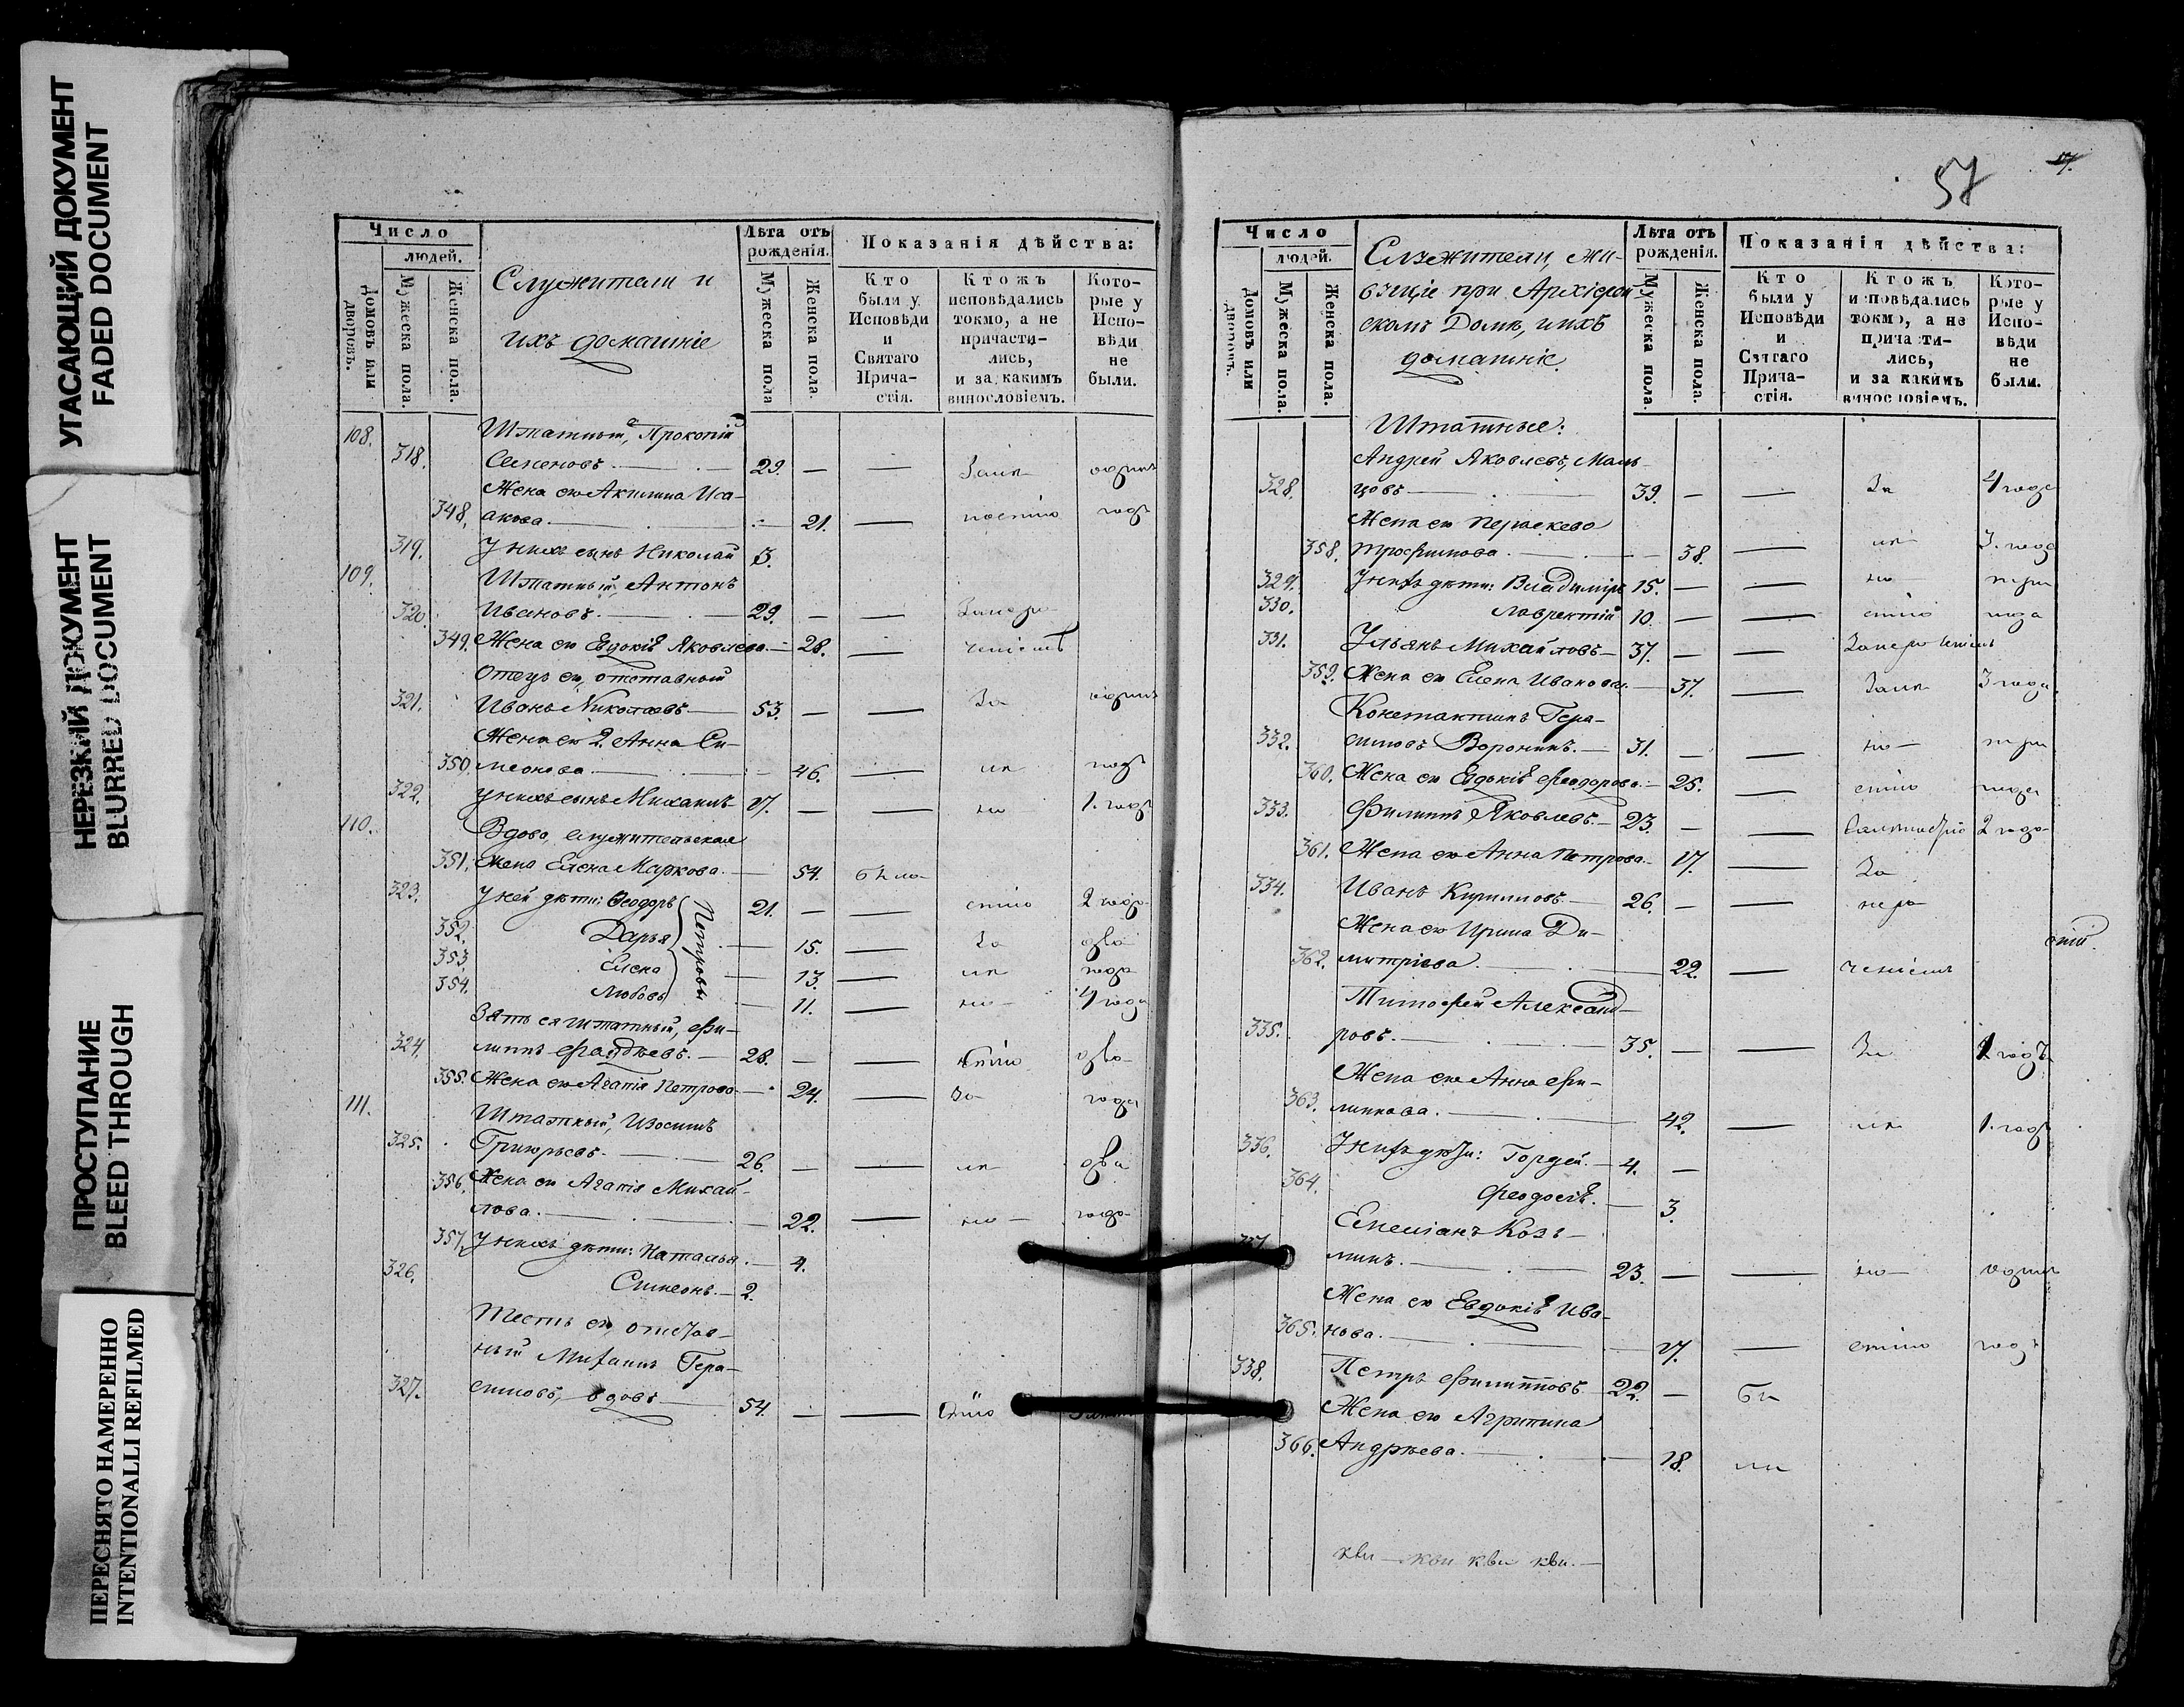 УГАСАЮЩИЙ ДОКУМЕНТ
FADED DOCUMENT
НЕРЕЗКИЙ ДОКУМЕНТ
BLURRED DOCUMENT
ПРОСТУПАНИЕ
BLEED THROUGH
ПЕРЕСНЯТО НАМЕРЕННО
INTENTIONALLI REFILMED
Число
людей.
Домовъ или дворовъ.
Мужеска пола.
Женска пола.
Служители и
ихъ домашніе
Лѣта отъ
рожденія.
Мужеска пола
Женска пола.
Показанія дѣйства:
Кто
были у
Исповѣди
и
Святаго
Прича-
стія.
Ктожъ
исповѣдались
токмо, а не
причасти-
лись,
и за какимъ
винословіемъ.
Кото-
рые у
Испо-
вѣди
не
были.
108. Штатный, Прокопій
318. Семеновъ. 29. — — одинъ
Жена его Акилина Иса-
348. акова. 21. — годъ
319. У нихъ сынъ Николай 3.
109. Штатный, Антонъ
320. Ивановъ. 29. — —
349. Жена его Евдокія Яковлева. 28. —
Отецъ его, отставный
321. Иванъ Николаевъ 53. — — За одинъ
Жена его 2. Анна Си-
350. меонова. 46. — годъ
322. У нихъ сынъ Михаилъ 17. — — 1. годъ
110. Вдова, служительская
351. жена Елена Маркова. 54. была
323. У ней дѣти: Ѳеодоръ 21. — — 2 года
352. Дарья 15. — За два
353. Елена 13. — года
354. Любовь 11. — 4 года
Петровы
Зять ея штатный, Фи-
324. липпъ Фаддѣевъ. 28. — — два
355. Жена его Агапія Петрова 24. — За года
111. Штатный, Изосимъ
325. Григорьевъ. 26. — — два
356. Жена его Агапія Михай-
лова. 22. — года
357. У нихъ дѣти: Наталья. 4.
326. Симеонъ. 2.
Тесть его, отстав-
ный Михаилъ Гера-
327. симовъ, вдовъ 54. — —
57
17.
Число
людей.
Домовъ или дворовъ.
Мужеска пола.
Женска пола.
Служители, жи-
вущіе при Архіерей-
скомъ Домѣ, и ихъ
домашніе.
Лѣта отъ
рожденія.
Мужеска пола.
Женска пола.
Показанія дѣйства:
Кто
были у
Исповѣди
и
Святаго
Прича-
стія.
Ктожъ
исповѣдались
токмо, а не
причасти-
лись,
и за какимъ
винословіемъ.
Кото-
рые у
Испо-
вѣди
не
были.
Штатные:
Андрей Яковлевъ, Маль-
328. цовъ 39. — — За 4 года
Жена его Параскева
358. Трофимова. 38. — 3. года
329. У нихъ дѣти: Владиміръ 15. — — три
330. Лаврентій 10. — — года
331. Ульянъ Михайловъ 37. — —
359. Жена его Елена Иванова. 37. — 3 года.
Константинъ Гера-
332. симовъ Воронинъ. 31. — — три
360. Жена его Евдокія Феодорова. 25. — года
333. Филиппъ Яковлевъ. 23. — — 2 года
361. Жена его Анна Петрова. 17. — За
334. Иванъ Кирилловъ. 26. — —
Жена его Ирина Ди-
362. митріева. 22. —
Тимофей Александ-
335. ровъ. 35. — — За 1 годъ
Жена его Анна Фи-
363. липпова. 42. — 1. годъ
336. У нихъ дѣти: Гордей. 4. —
364. Феодосія. 3.
Емеліанъ Козь-
337. минъ. 23. — — одинъ
Жена его Евдокія Ива-
365. нова. 17. — годъ
338. Петръ Филипповъ. 22. — бы
Жена его Агрипина
366. Андрѣева. 18. ли
кви кви кви кви.